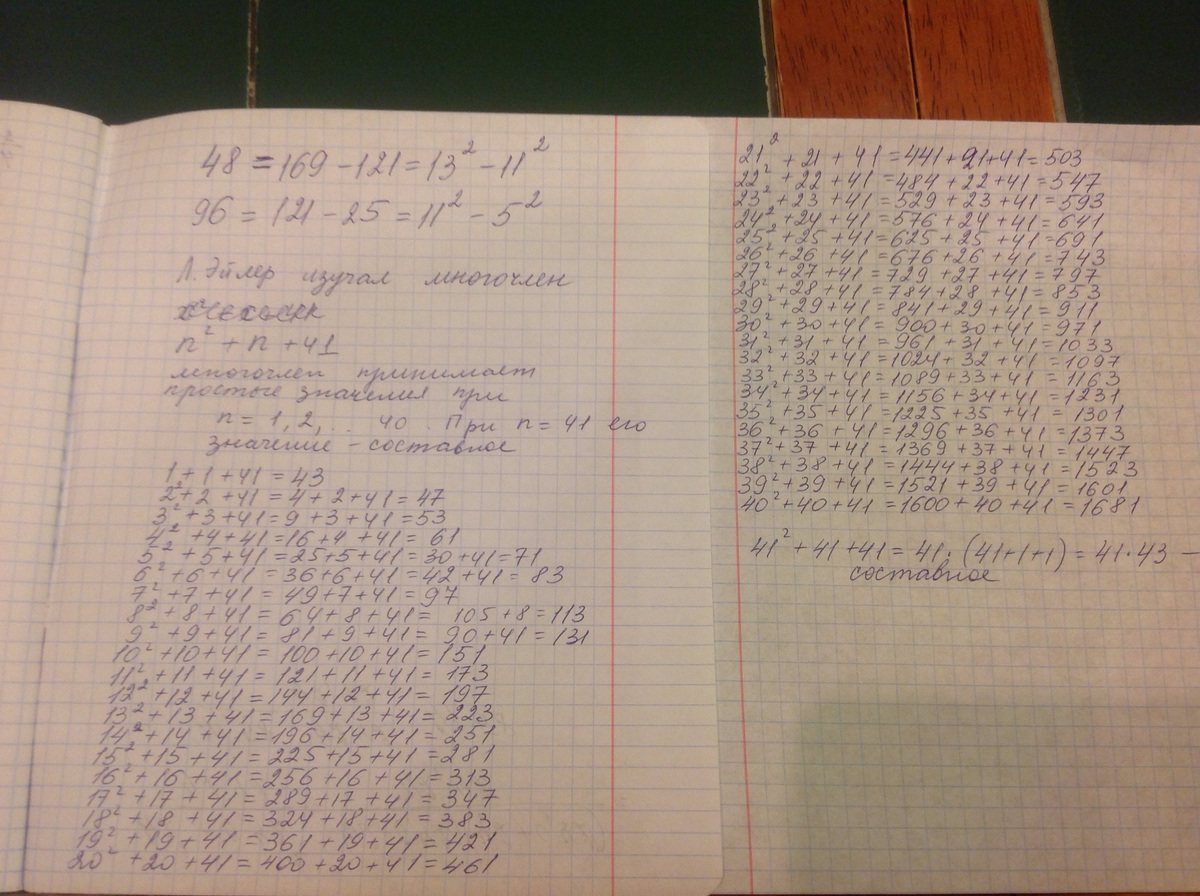 48 = 169 - 121 = 13² - 11²
96 = 121 - 25 = 11² - 5²
Л. Эйлер изучал многочлен
n² + n + 41
многочлен принимает
простые значения при
n = 1, 2, .. 40. При n = 41 его
значение - составное
1 + 1 + 41 = 43
2² + 2 + 41 = 4 + 2 + 41 = 47
3² + 3 + 41 = 9 + 3 + 41 = 53
4² + 4 + 41 = 16 + 4 + 41 = 61
5² + 5 + 41 = 25 + 5 + 41 = 30 + 41 = 71
6² + 6 + 41 = 36 + 6 + 41 = 42 + 41 = 83
7² + 7 + 41 = 49 + 7 + 41 = 97
8² + 8 + 41 = 64 + 8 + 41 = 105 + 8 = 113
9² + 9 + 41 = 81 + 9 + 41 = 90 + 41 = 131
10² + 10 + 41 = 100 + 10 + 41 = 151
11² + 11 + 41 = 121 + 11 + 41 = 173
12² + 12 + 41 = 144 + 12 + 41 = 197
13² + 13 + 41 = 169 + 13 + 41 = 223
14² + 14 + 41 = 196 + 14 + 41 = 251
15² + 15 + 41 = 225 + 15 + 41 = 281
16² + 16 + 41 = 256 + 16 + 41 = 313
17² + 17 + 41 = 289 + 17 + 41 = 347
18² + 18 + 41 = 324 + 18 + 41 = 383
19² + 19 + 41 = 361 + 19 + 41 = 421
20² + 20 + 41 = 400 + 20 + 41 = 461
21² + 21 + 41 = 441 + 21 + 41 = 503
22² + 22 + 41 = 484 + 22 + 41 = 547
23² + 23 + 41 = 529 + 23 + 41 = 593
24² + 24 + 41 = 576 + 24 + 41 = 641
25² + 25 + 41 = 625 + 25 + 41 = 691
26² + 26 + 41 = 676 + 26 + 41 = 743
27² + 27 + 41 = 729 + 27 + 41 = 797
28² + 28 + 41 = 784 + 28 + 41 = 853
29² + 29 + 41 = 841 + 29 + 41 = 911
30² + 30 + 41 = 900 + 30 + 41 = 971
31² + 31 + 41 = 961 + 31 + 41 = 1033
32² + 32 + 41 = 1024 + 32 + 41 = 1097
33² + 33 + 41 = 1089 + 33 + 41 = 1163
34² + 34 + 41 = 1156 + 34 + 41 = 1231
35² + 35 + 41 = 1225 + 35 + 41 = 1301
36² + 36 + 41 = 1296 + 36 + 41 = 1373
37² + 37 + 41 = 1369 + 37 + 41 = 1447
38² + 38 + 41 = 1444 + 38 + 41 = 1523
39² + 39 + 41 = 1521 + 39 + 41 = 1601
40² + 40 + 41 = 1600 + 40 + 41 = 1681
41² + 41 + 41 = 41 · (41 + 1 + 1) = 41 · 43 -
составное